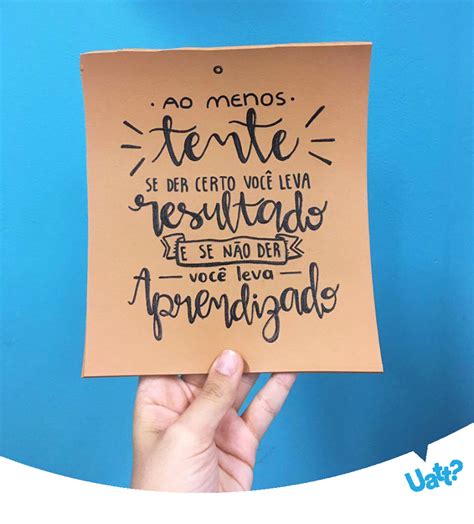 AO MENOS
tente
SE DER CERTO VOCÊ LEVA
resultado
E SE NÃO DER
VOCÊ leva
Aprendizado
Uatt?